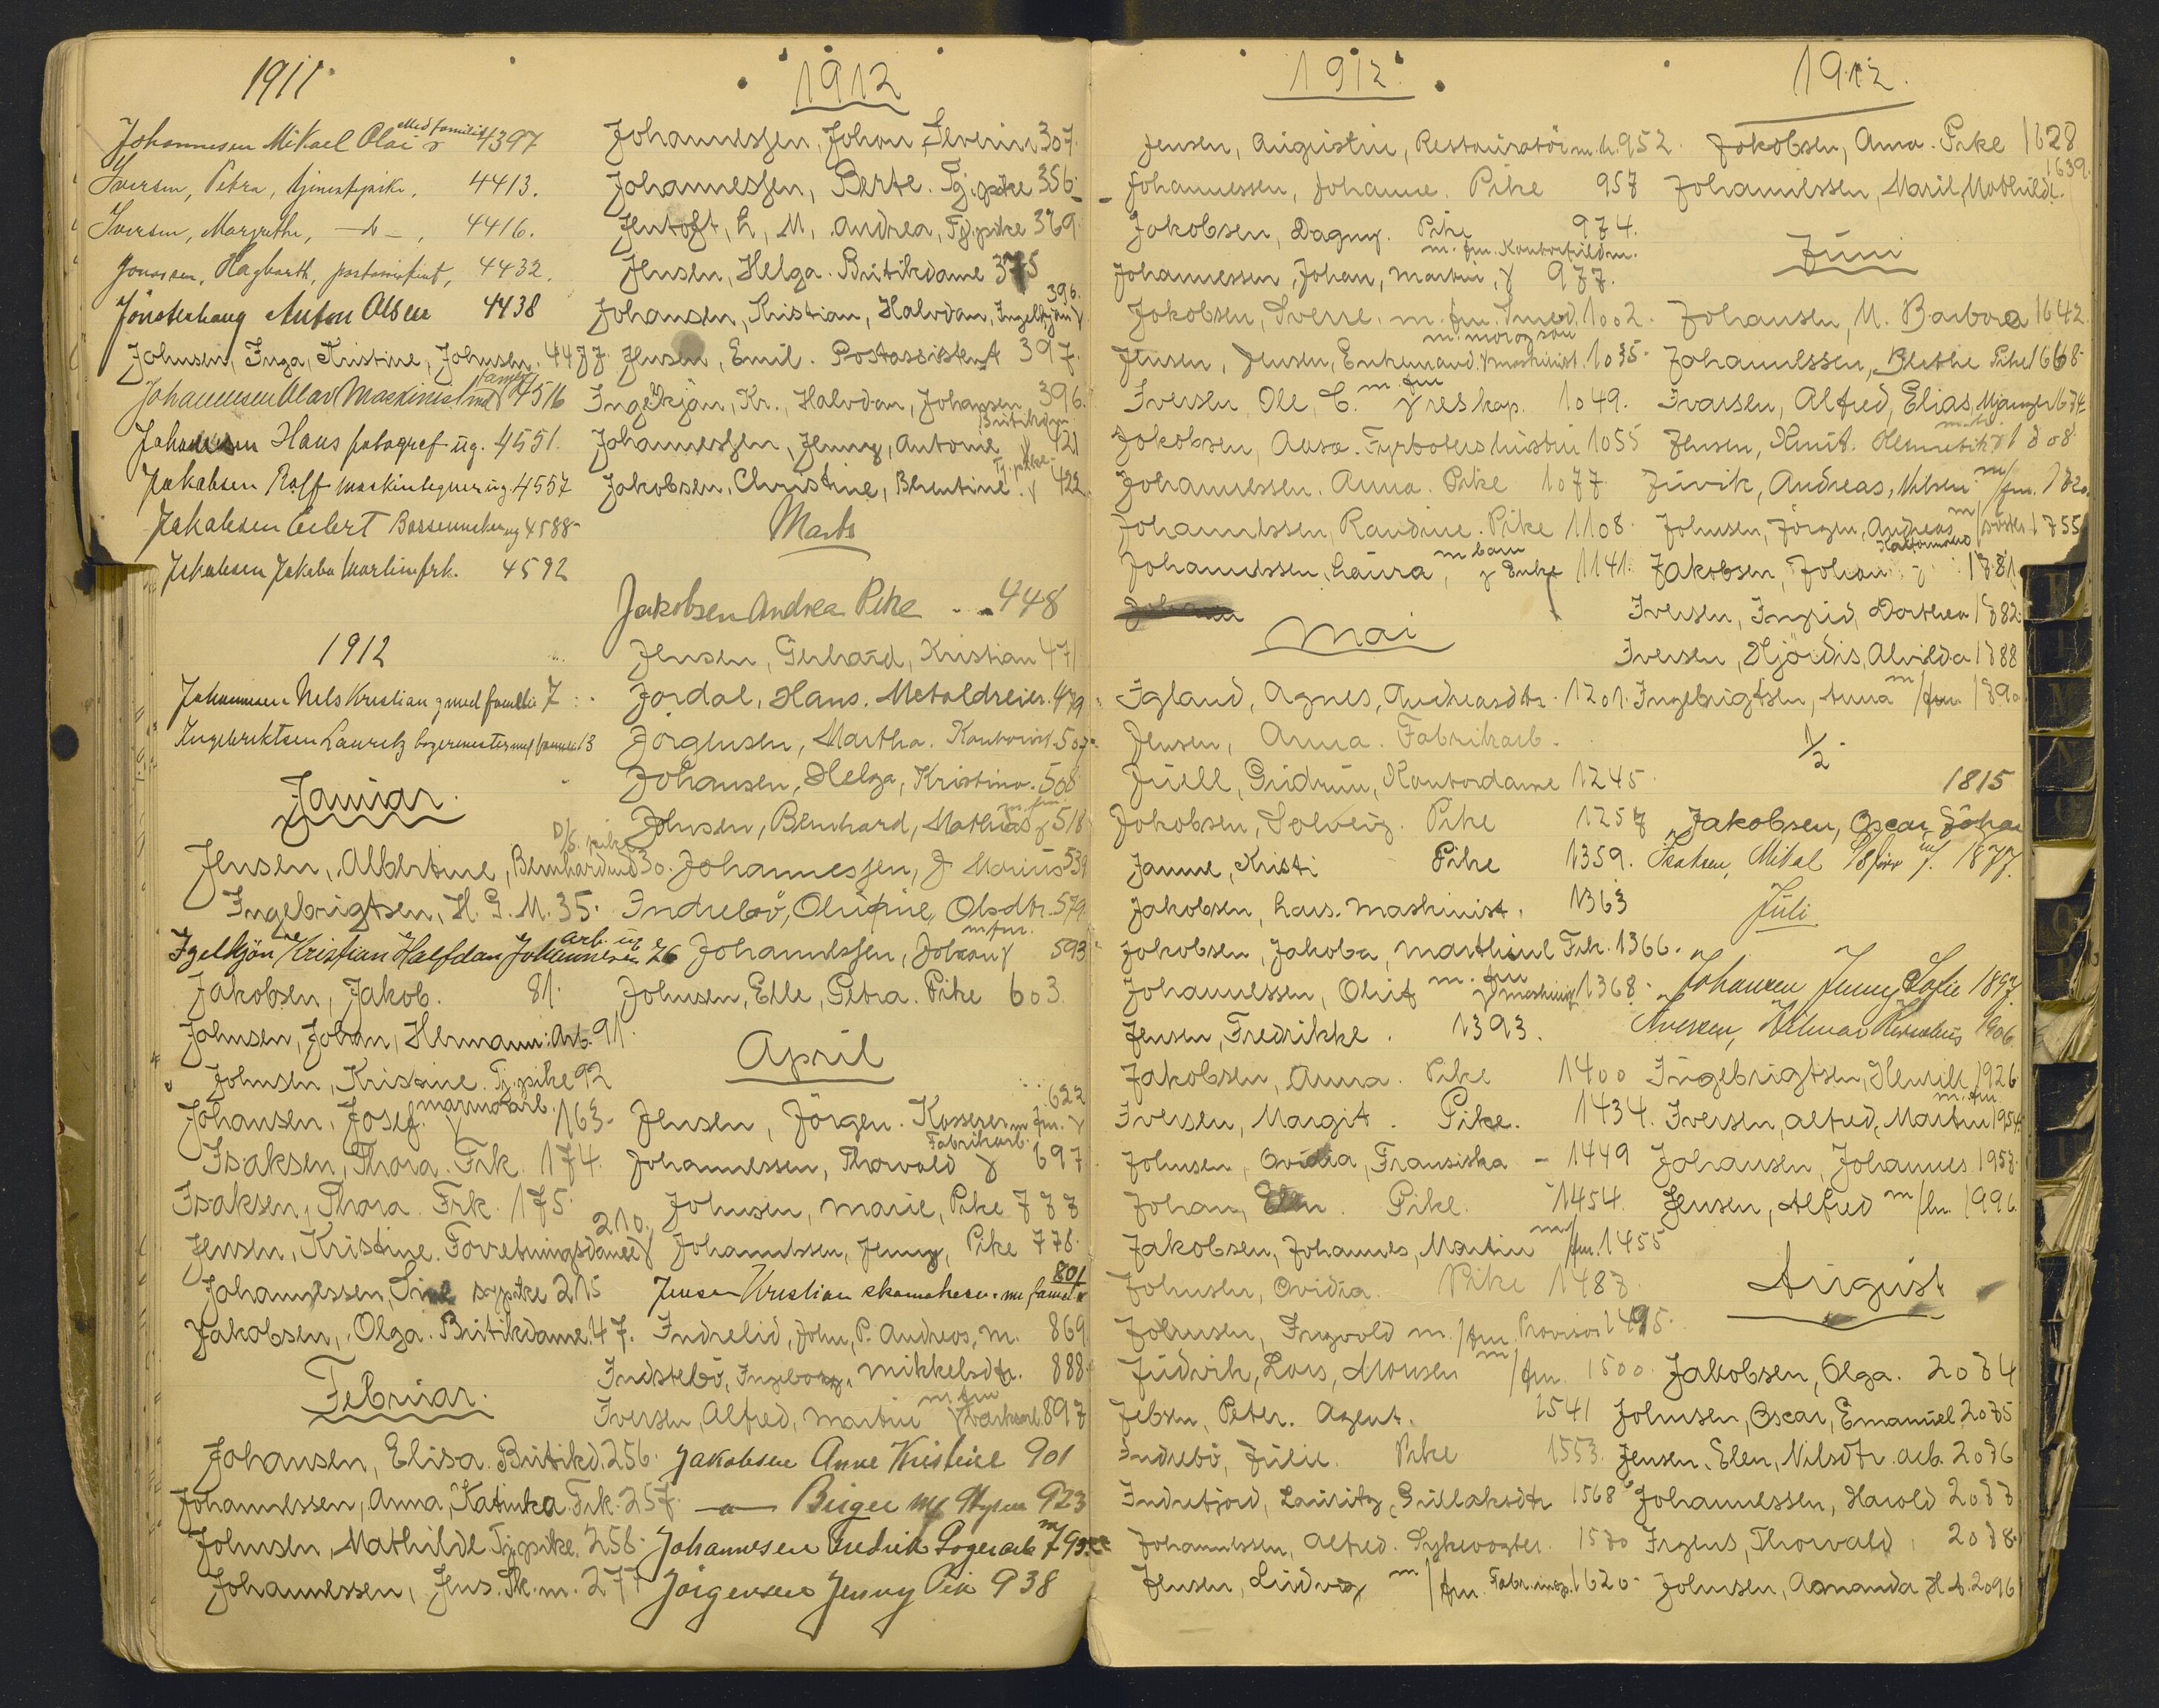 1911
Johannesen Mikael Olai med familie 4397
Iversen, Petra, tjenestepike, 4413.
Iversen, Margrethe, -"-, 4416.
Jonassen, Hagbarth, postassistent, 4432.
Anton Olsen 4438
Johnsen, Inga, Kristine, Johnsen. 4477
Johannesen Olav Maskinist md familie 4516
Johannesen Hans fotograf ug. 4551.
Jakobsen Rolf maskintegner ug 4557
Jakobsen Eilert ug 4588
Jakobsen Jakoba Martine frk. 4592
1912
Johannesen Nels Kristian g med familie 7
Ingebrektsen Lauritz g med familie 13
Januar.
Jensen, Albertine, Bernhardine 30.
Ingebrigtsen, H. G. M. 35.
Kristian Halfdan Johannesen arb. ug 76
Jakobsen, Jakob. 81.
Johnsen, Johan, Hermann. Arb. 91.
Johnsen, Kristine. Tj.pike 92
Johansen, Josef. marmorarb. 163.
Isaksen, Thora. Frk. 174.
Isaksen, Thora. Frk. 175.
210.
Jensen, Kristine. Forretningsdame
Johannessen, Sine sypike 215
Jakobsen, Olga. Butikdame. 47.
Februar.
Johansen, Elisa. Butikd. 256.
Johannessen, Anna, Katinka. Frk. 257.
Johnsen, Mathilde Tj.pike. 258.
Johannessen, Jens. Sk.m. 277
1912
Johannessen, Johan, Severin 307.
Johannessen, Berte. Tj.pike 356.
Jentoft, L, M, Andrea, Tj.pike 369.
Jensen, Helga. Butikdame 375
396.
Johansen, Kristian, Halvdan,
Jensen, Emil. Postassistent 397.
Kr., Halvdan, Johansen 396.
Johannessen, Jenny, Antonie Butikdm 421
Jakobsen, Christine, Berntine. Tj.pike 422.
Marts
Jakobsen Andrea Pike 448
Jensen, Gerhard, Kristian 471
Jordal, Hans. Metaldreier. 479
Jörgensen, Martha. Kontorist. 507
Johansen, Helga, Kristina. 508
Johnsen, Bernhard, Mathias m. fm. 518
Johannessen, J. Marius 539
Indrebö, Oline, Olsdtr. 579.
Johannessen, Johan m fm. 593
Johnsen, Elle, Petra. Pike 603.
April
622
Jensen, Jörgen. Kasserer m fm.
Johannessen, Thorvald Fabrikarb. 697
Johnsen, Marie, Pike 777
Johannessen, Jenny, Pike 778.
801
Jensen Kristian skomaker m. famil
Indrelid, John, P. Andreas, M. 869.
Indstebö, Ingeborg, Mikkelsdtr. 888
Iversen, Alfred, Martin m fm 897
Jakobsen Anne Kristine 901
-"- Birger 923
Johannesen Fredrik Lagerarb m/f
Jörgensen Jenny Pik 938
1912.
Jensen, Augustin, Restauratör m.h. 952.
Johannessen, Johanne. Pike 957
Jakobsen, Dagny. Pike 974.
Johannessen, Johan, Martin, m. fm. 977.
Jakobsen, Sverre. m. fm. Smed. 1002.
Jensen, Jensen, Enkemand. m. mor og sön maskinist. 1035.
Iversen, Ole, C. m. fm reskap. 1049.
Jakobsen, Aasa. Fyrböterhustru 1055
Johannessen. Anna. Pike 1077.
Johannessen, Randine. Pike 1108.
Johannessen, Laura, m barn Enke 1141.
Mai
Igland, Agnes, Andreasdtr. 1201.
Jensen, Anna. Fabrikarb.
Juell, Gudrun, Kontordame 1245.
Jakobsen, Solveig. Pike 1257
Janne, Kristi Pike 1359.
Jakobsen, Lars. Maskinist. 1363
Jakobsen, Jakoba, Marthine Frk. 1366.
Johannessen, Oluf m. fm maskinist 1368.
Jensen, Fredrikke. 1393.
Jakobsen, Anna. Pike 1400
Iversen, Margit. Pike. 1434.
Johnsen, Ovidia, Fransiska - 1449
Johan, Pike. 1454.
Jakobsen, Johannes, Martin m/fm. 1455
Johnsen, Ovidia. Pike 1487.
Johnsen, Ingvald m./fm. Provisor 1495.
Judvik, Lars, Monsen m/fm. 1500.
Jebsen, Peter. Agent. 1541
Indrebö, Julie. Pike 1553.
Indrefjord, Lauritz, Gullaksdtr 1568
Johannessen, Alfred. Sykevogter. 1570
Jensen, Ludvig m/fm. Fabr.insp. 1620.
1912.
Jakobsen, Anna. Pike 1628
1639.
Johannessen, Marie, Mathilde.
Juni
Johansen, M. Barbora 1642.
Johannessen, Berthe Pike 1668.
Ivarsen, Alfred, Elias,
Jensen, Knut. Hermetik 1708.
Juvik, Andreas, Nilsen m/fm. 1720.
Johnsen, Jörgen, Andreas m/söster 1755
Jakobsen, Johan 1781.
Iversen, Ingrid, Dorthea 1782.
Iversen, Hjördis, Alvilda 1788
Ingebrigtsen, Anna m/fm. 1790
1/2.
1815
Jakobsen, Oscar Johan
Isaksen, Mikal m/f. 1877.
Juli
Johansen Jenny Sofie 1897
Iversen, Hilmar 1906
Ingebrigtsen, Henrik 1926.
Iversen, Alfred, Martin m. fm. 1954
Johansen, Johannes 1958.
Jensen, Alfred m/fm. 1996.
August
Jakobsen, Olga. 2074
Johnsen, Oscar, Emanuel. 2075
Jensen, Elen, Nilsdtr. arb. 2076
Johannessen, Harold 2077
Irgens, Thorvald, 2078.
Johnsen, Amanda, H. A. 2096